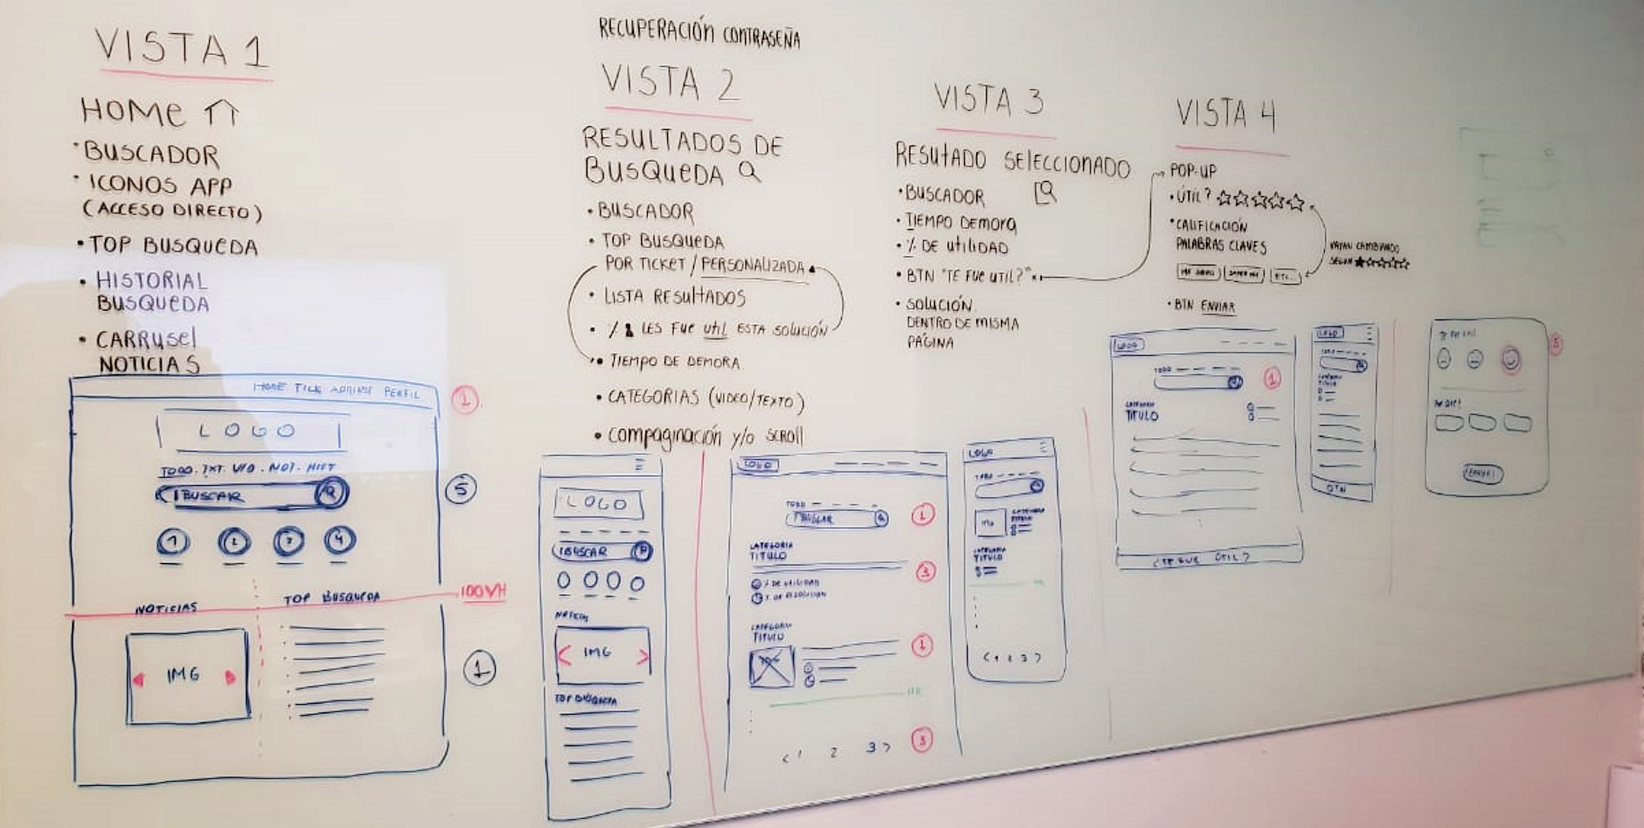 VISTA 1
HOME
• BUSCADOR
• ICONOS APP
(ACCESO DIRECTO)
• TOP BUSQUEDA
• HISTORIAL
BUSQUEDA
• CARRUSEL
NOTICIAS
HOME TICK ADMINSE PERFIL
1
LOGO
TODO . TXT . VID . NOT . HIST
BUSCAR
5
1 2 3 4
100VH
NOTICIAS
TOP BUSQUEDA
IMG
1
RECUPERACIÓN CONTRASEÑA
VISTA 2
RESULTADOS DE
BUSQUEDA
• BUSCADOR
• TOP BUSQUEDA
POR TICKET / PERSONALIZADA
• LISTA RESULTADOS
• % LES FUE UTIL ESTA SOLUCIÓN
• TIEMPO DE DEMORA.
• CATEGORIAS (VIDEO/TEXTO)
• COMPAGINACIÓN Y/O SCROLL
LOGO
BUSCAR
NOTICIAS
< IMG >
TOP BUSQUEDA
LOGO
TODO
BUSCAR
1
CATEGORIA
TITULO
3
% DE UTILIDAD
CATEGORIA
TITULO
1
HR
< 1 2 3 >
3
LOGO
TODO
IMG
CATEGORIA
TITULO
CATEGORIA
TITULO
HR
< 1 2 3 >
VISTA 3
RESULTADO SELECCIONADO
• BUSCADOR
• TIEMPO DEMORA
• % DE UTILIDAD
• BTN "TE FUE UTIL?"
• SOLUCIÓN
DENTRO DE MISMA
PÁGINA
VISTA 4
POP-UP
• ÚTIL?
• CALIFICACIÓN
PALABRAS CLAVES
ETC..
VAYAN CAMBIANDO
SEGÚN
• BTN ENVIAR
LOGO
TODO
1
CATEGORIA
TITULO
¿TE FUE ÚTIL?
LOGO
TODO
CATEGORIA
TITULO
BTN
ENVIAR